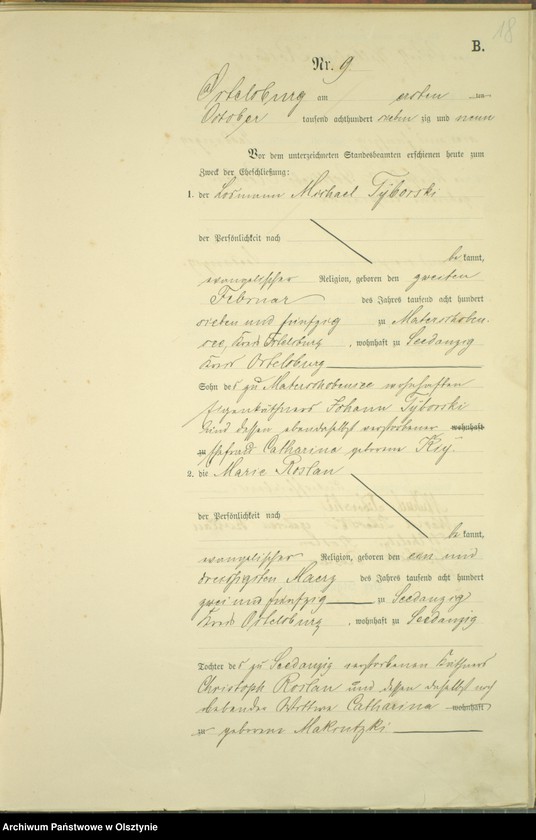 18
B.
Nr. 9
Ortelsburg am ersten ten
October tausend achthundert sieben zig und neun
Vor dem unterzeichneten Standesbeamten erschienen heute zum
Zweck der Eheschließung:
1. der Losmann Michael Tÿborski
der Persönlichkeit nach
be kannt,
evangelischer Religion, geboren den zweiten
Februar des Jahres tausend acht hundert
sieben und fünfzig zu Materschoben-
see, Kreis Ortelsburg, wohnhaft zu Seedanzig
Kreis Ortelsburg
Sohn des zu Materschobensee wohnhaften
Eigenkäthners Johann Tÿborski
und dessen ebendaselbst verstorbener wohnhaft
zu Ehefrau Catharina geborene
2. die Marie Roslan
der Persönlichkeit nach
be kannt,
evangelischer Religion, geboren den ein und
dreißigsten Maerz des Jahres tausend acht hundert
zwei und fünfzig zu Seedanzig
Kreis Ortelsburg, wohnhaft zu Seedanzig
Tochter des zu Seedanzig verstorbenen Käthners
Christoph Roslan und dessen daselbst noch
lebender Wittwe Catharina wohnhaft
zu geborene Makrutzki
Archiwum Państwowe w Olsztynie